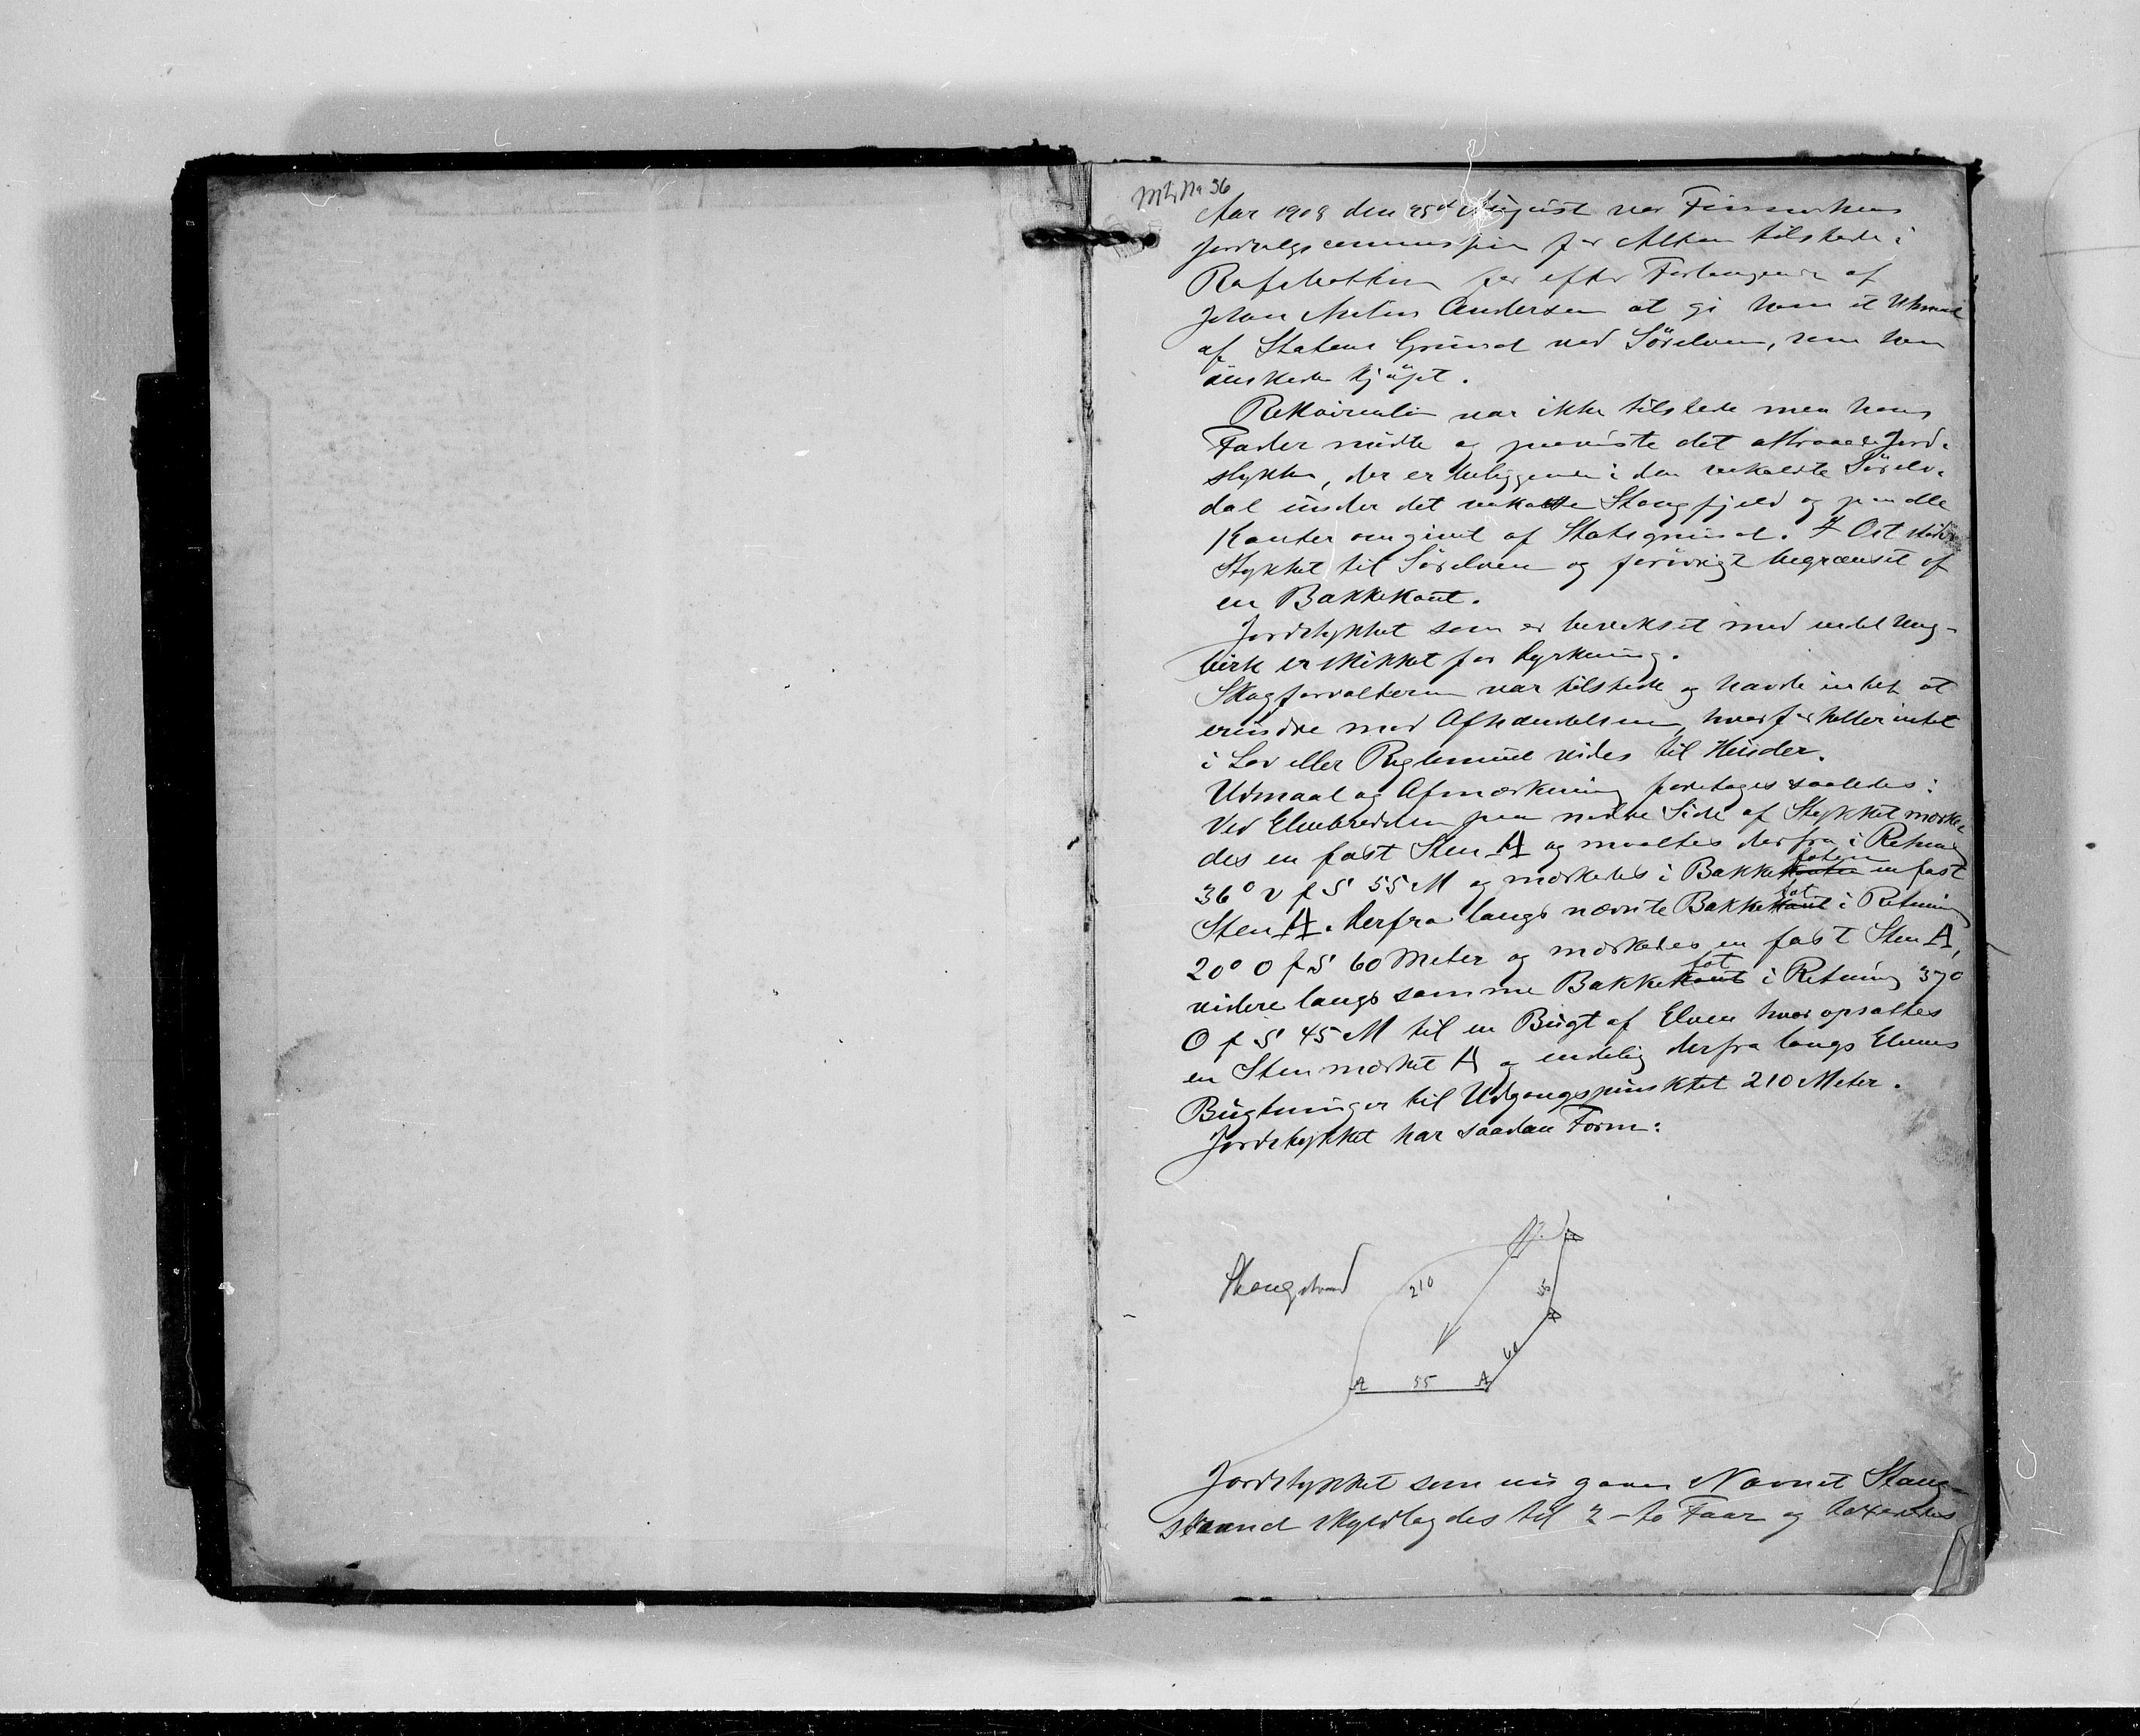 Mtr No 36
Aar 1908 den 25de August var Finmarkens
Jordsalgscommission for Alten tilstede i
Rafsbotten for efter Forlangende af
Johan Andersen at gi ham et
af Statens Grund ved Sörelven, som han
önsker kjöpt.
Rekvirenten var ikke tilstede men hans
Fader mödte og paaviste det attraaede Jord-
stykke, der er beliggende i den saakaldte Sörelv-
dal under det saakaldte Stangfjeld og paa alle
Kanter omgivet af Statsgrund. I Öst stöder
Stykket til Sörelven og forövrigt begrænset af
en Bakkekant.
Jordstykket som er bevokset med endel Ung-
birk er skikket for Dyrkning.
Skogforvalteren var tilstede og havde intet at
erindre mod Afhændelsen, hvorfor heller intet
i Lov eller Reglement vides til Hinder.
Udmaal og Afmærkning foretoges saaledes:
Ved Elvebredden paa nedre Side af Stykket mærke-
des en fast Sten A og maaltes derfra i Retning
36° v f S 55 M og mærkedes i Bakkefoten en fast
Sten A. Derfra langs nævnte Bakkefot i Retning
20° O f S 60 Meter og mærkedes en fast Sten A,
videre langs samme Bakkefot i Retning 37°
O f S 45 M til en Bugt af Elven hvor opsattes
en Sten mærket A og endelig derfra langs Elvens
Bugtninger til Udgangspunktet 210 Meter.
Jordstykket har saadan Form:
Stangstrand
210
45
60
A 55 A
Jordstykket som nu gaves Navnet Stang-
strand skyldlagdes til 2 - to Faar og taxeredes